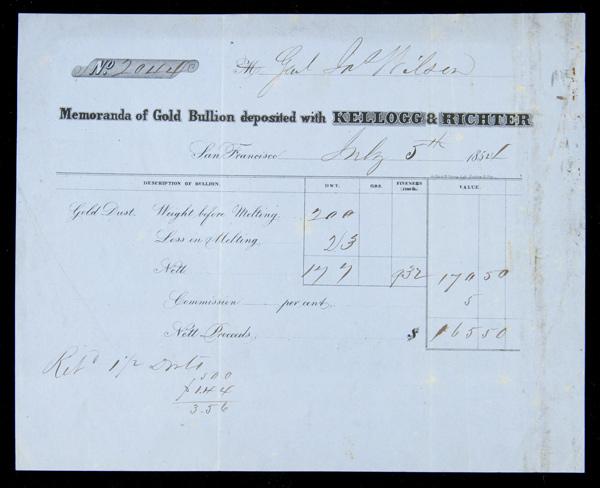 No. 2044 Mr Genl Jno Wilson
Memoranda of Gold Bullion deposited with KELLOGG & RICHTER
San Francisco July 5th 1854
DESCRIPTION OF BULLION. DWT. GRS. FINENESS VALUE.
Gold Dust. Weight before Melting. 200
Loss in Melting 23
Nett 177 932 170 50
Commission per cent. 5
Nett Proceeds, $ 165 50
500
144
3.56